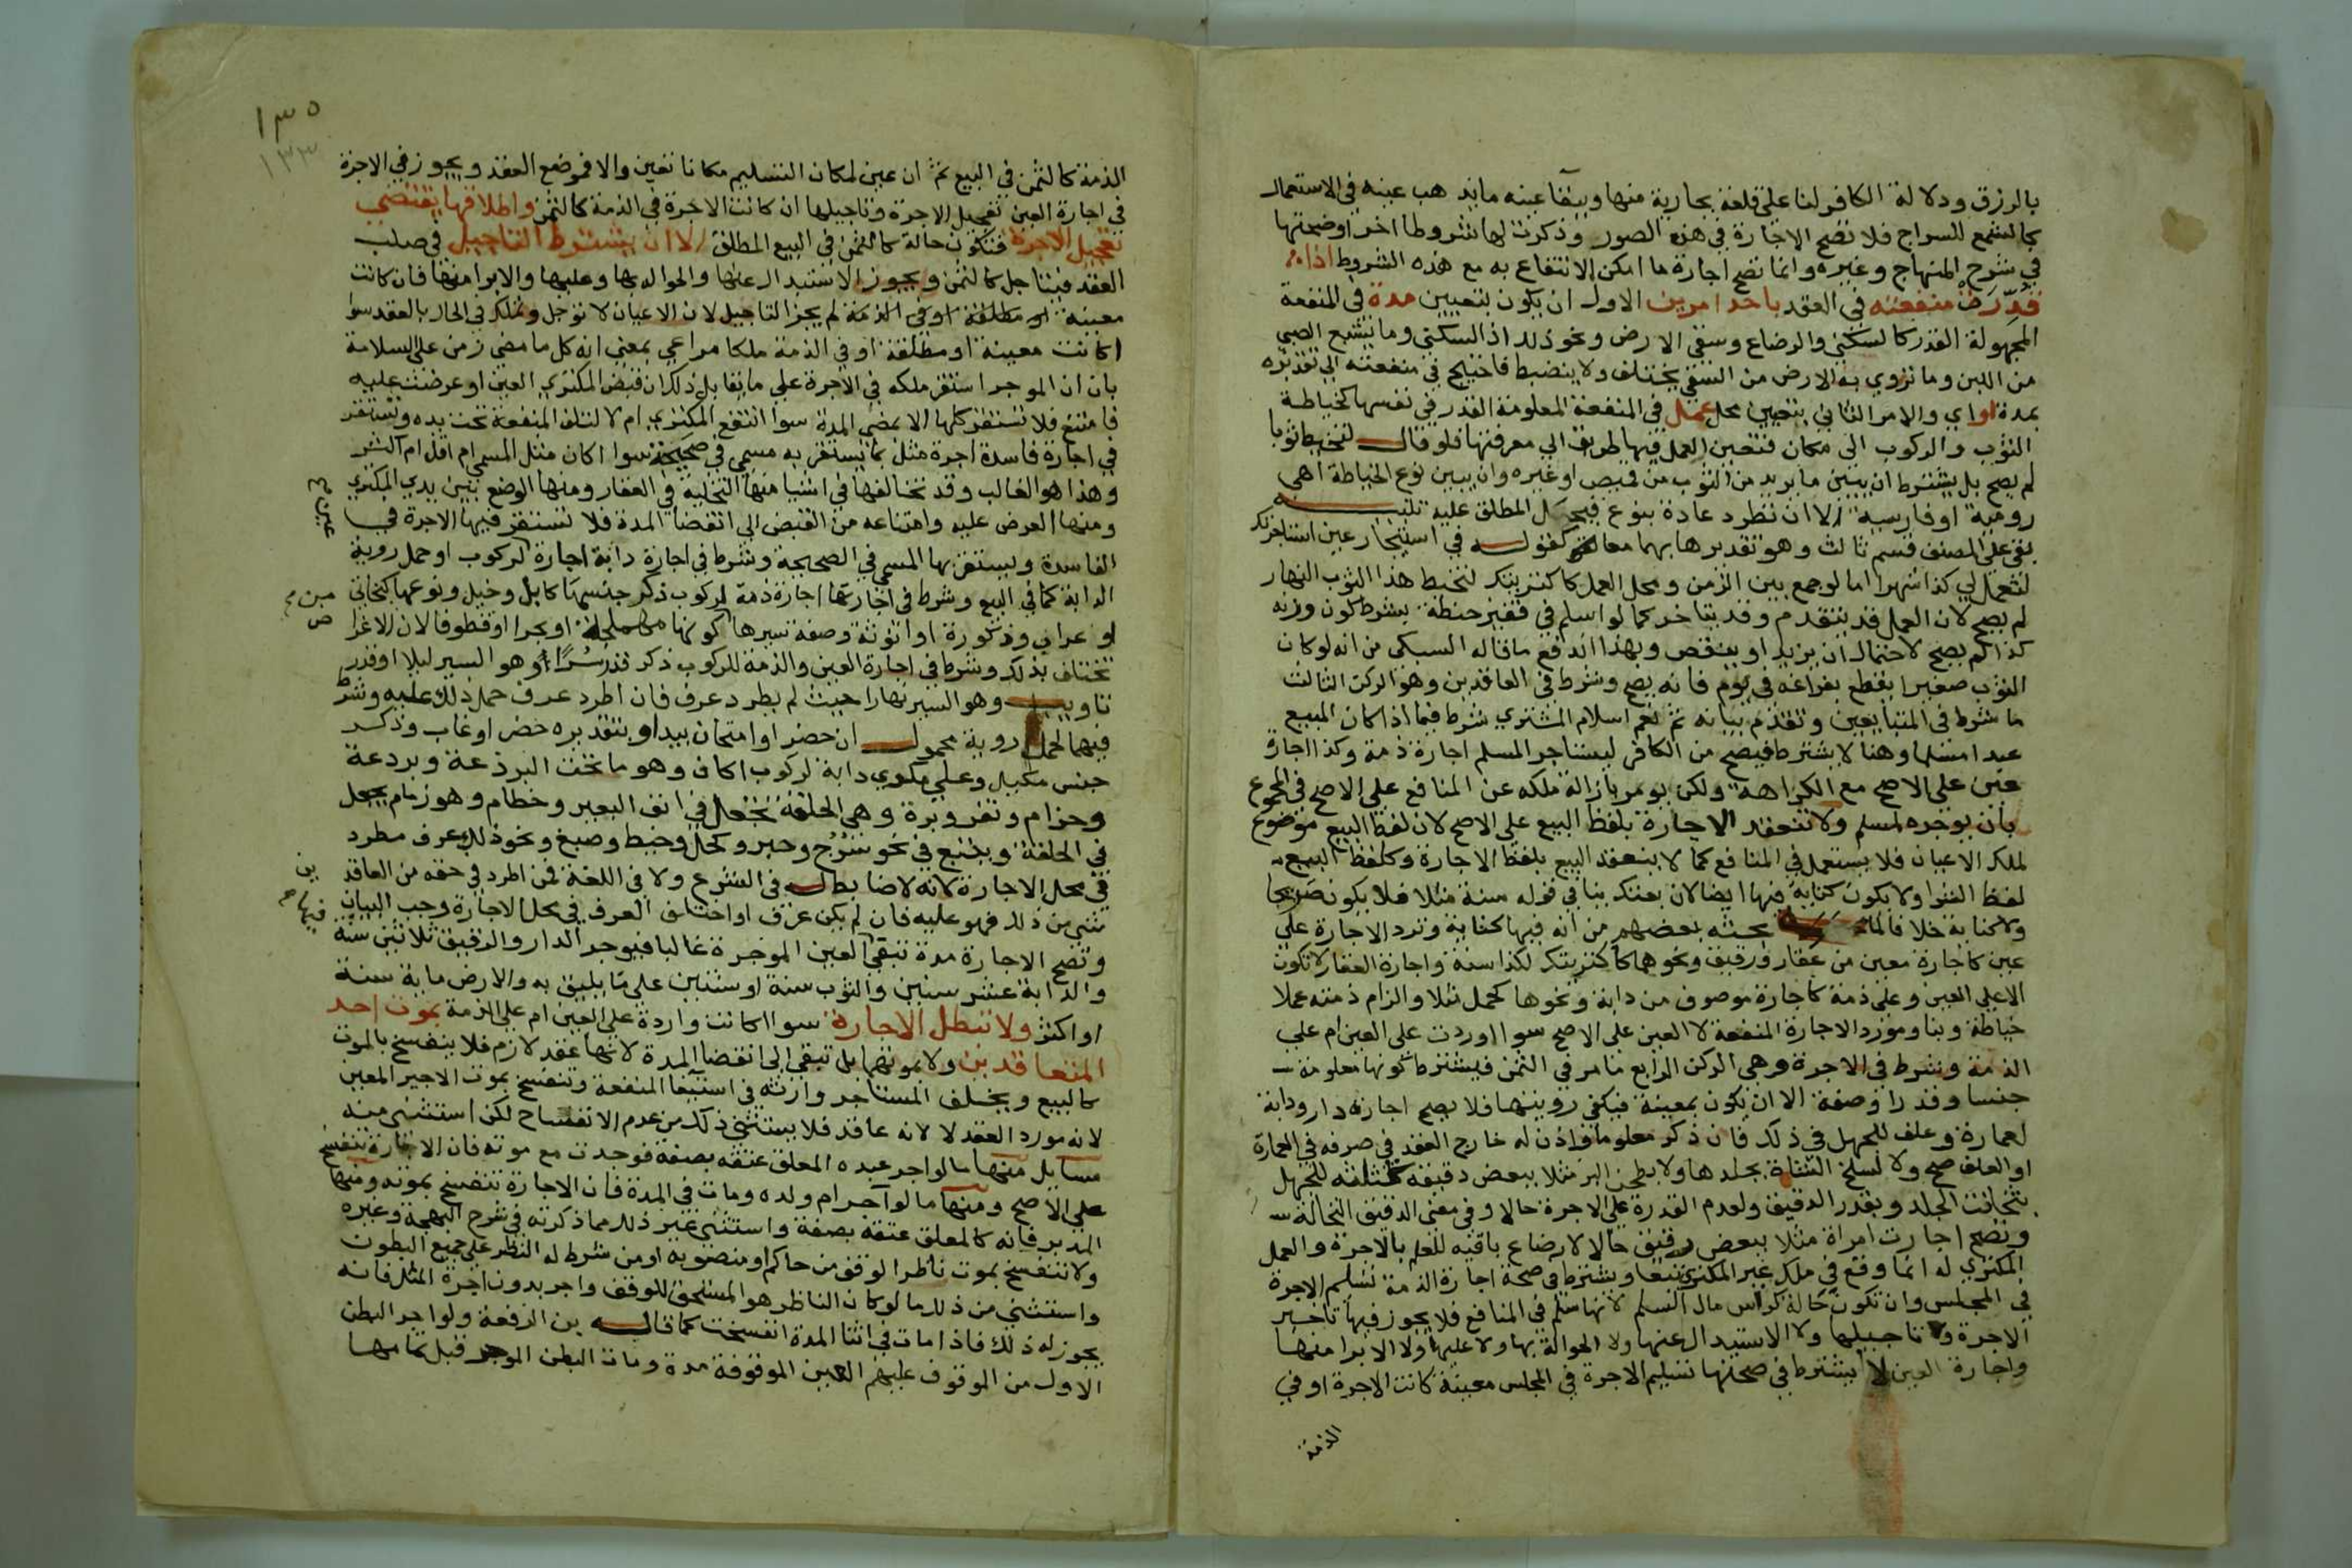 بالرزق ودلالة الكافر لنا على قلعة بجارية منها وببقا عينه ما يذهب عينه في الاستعمال
كالشمع للسراج فلا تصح الاجارة في هذه الصور وذكرت لها شروطا اخر اوضحتها
في شرح المنهاج وغيره وانما تصح اجارة ما امكن الانتفاع به مع هذه الشروط اذا
قدرت منفعته في العقد باحد امرين الاول ان يكون بتعيين مدة في المنفعة
المجهولة القدر كالسكنى والرضاع وسقي الارض ونحو ذلك اذ السكنى وما يشبع الصبي
من اللبن وما تروي به الارض من السقي يختلف ولا ينضبط فاحتيج في منفعته الى تقديره
بمدة او اي والامر الثاني بتعيين محل عمل في المنفعة المعلومة القدر في نفسها كخياطة
الثوب والركوب الى مكان فتعيين العمل فيها طريق الى معرفتها فلو قال لتخيط ثوبا
لم يصح بل يشترط ان يبين ما يريد من الثوب من قميص او غيره وان يبين نوع الخياطة اهي
رومية او فارسية الا ان تطرد عادة بنوع فيحمل المطلق عليه تنبيه
بقي على المصنف قسم ثالث وهو تقديرها بهما معا كقوله في استيجار عين استاجرتك
لتعمل لي كذا شهرا اما لو جمع بين الزمن ومحل العمل كاكتريتك لتخيط هذا الثوب النهار
لم يصح لان العمل قد يتقدم وقد يتاخر كما لو اسلم في قفيز حنطة بشرط كون وزنه
كذا لم يصح لاحتمال ان يزيد او ينقص وبهذا اندفع ما قاله السبكي من انه لو كان
الثوب صغيرا يقطع بفراغه في يوم فانه يصح وشرط في العاقدين وهو الركن الثالث
ما شرط في المتبايعين وتقدم بيانه ثم نعم اسلام المشتري شرط فيما اذا كان المبيع
عبدا مسلما وهنا لا يشترط فيصح من الكافر ليستاجر المسلم اجارة ذمة وكذا اجارة
عين على الاصح مع الكراهة ولكن يومر بازالة ملكه عن المنافع على الاصح في المجموع
بان يوجره لمسلم ولا تنعقد الاجارة بلفظ البيع على الاصح لان لفظ البيع موضوع
لملك الاعيان فلا يستعمل في المنافع كما لا ينعقد البيع بلفظ الاجارة وكلفظ البيع
لفظ الشرا ولا يكون كناية فيها ايضا لان بعتك ينافي قوله سنة مثلا فلا يكون صريحا
ولا كناية خلافا لما بحثه بعضهم من انه فيها كناية وترد الاجارة على
عين كاجارة معين من عقار ورقيق ونحوهما كاكتريتك لكذا سنة واجارة العقار لا تكون
الا على العين وعلى ذمة كاجارة موصوف من دابة ونحوها كحمل مثلا والزام ذمته عملا
خياطة وبنا ومورد الاجارة المنفعة لا العين على الاصح سوا اوردت على العين ام على
الذمة وشرط في الاجرة وهي الركن الرابع ما مر في الثمن فيشترط كونها معلومة
جنسا وقدرا وصفة الا ان تكون معينة فيكفي رويتها فلا يصح اجارة دار ودابة
لعمارة وعلف للجهل في ذلك فان ذكر معلوما واذن له خارج العقد في صرفه في العمارة
او العلف صح ولا لسلخ الشاة بجلدها ولا بطحن البر مثلا ببعض دقيقه كثلثه للجهل
بثخانة الجلد وبقدر الدقيق ولعدم القدرة على الاجرة حالا وفي معنى الدقيق النخالة
وتصح اجارة امراة مثلا ببعض رقيق حالا لارضاع باقيه للعلم بالاجرة والعمل
المكتري له انما وقع في ملك غير المكتري تبعا ويشترط في صحة اجارة الذمة تسليم الاجرة
في المجلس وان تكون حالة كراس مال السلم لانها سلم في المنافع فلا يجوز فيها تاخير
الاجرة ولا تاجيلها ولا الاستبدال عنها ولا الحوالة بها ولا عليها ولا الابرا منها
واجارة العين لا يشترط في صحتها تسليم الاجرة في المجلس معينة كانت الاجرة او في
الذمة
١٣٥
١٣٣
الذمة كالثمن في البيع ثم ان عين لمكان التسليم مكانا تعين والا فموضع العقد ويجوز في الاجرة
في اجارة العين تعجيل الاجرة وتاجيلها ان كانت الاجرة في الذمة كالثمن واطلاقها يقتضي
تعجيل الاجرة فتكون حالة كالثمن في البيع المطلق الا ان يشترط التاجيل في صلب
العقد فيتاجل كالثمن ويجوز الاستبدال عنها والحوالة بها وعليها والابرا منها فان كانت
معينة او مطلقة او في الذمة لم يجز التاجيل لان الاعيان لا توجل وتملك في الحال بالعقد سوا
اكانت معينة او مطلقة او في الذمة ملكا مراعى بمعنى انه كل ما مضى زمن على السلامة
بان ان الموجر استقر ملكه في الاجرة على ما يقابل ذلك ان قبض المكتري العين او عرضت عليه
فامتنع فلا تستقر كلها الا بمضي المدة سوا انتفع المكتري ام لا لتلف المنفعة تحت يده وتستقر
في اجارة فاسدة اجرة مثل بما يستقر به مسمى في صحيحة سوا اكان مثل المسمى ام اقل ام اكثر
وهذا هو الغالب وقد تخالفها في اشيا منها التخلية في العقار ومنها الوضع بين يدي المكتري
ومنها العرض عليه وامتناعه من القبض الى انقضا المدة فلا تستقر فيها الاجرة في
الفاسدة ويستقر بها المسمى في الصحيحة وشرط في اجارة دابة اجارة لركوب او حمل روية
الدابة كما في البيع وشرط في اجارتها اجارة ذمة لركوب ذكر جنسها كابل وخيل ونوعها كبخاتي
او عراب وذكورة او انوثة وصفة سيرها كونها مهملجة او بحرا او قطوفا لان الاغرا
تختلف بذلك وشرط في اجارة العين والذمة للركوب ذكر قدر سرا او هو السير ليلا او قدر
تاويب وهو السير نهارا حيث لم يطرد عرف فان اطرد عرف حمل ذلك عليه وشرط
فيهما لحمل روية محمول ان حضر او امتحان بيد او بتقديره حضر او غاب وذكر
جنس مكيل وعلى مكري دابة لركوب اكاف وهو ما تحت البرذعة وبردعة
وحزام وثفر وبرة وهي الحلقة تجعل في انف البعير وخطام وهو زمام يجعل
في الحلقة ويتبع في نحو سرج وحبر وكحل وخيط وصبغ ونحو ذلك عرف مطرد
في محل الاجارة لانه لا ضابط له في الشرع ولا في اللغة فمن اطرد في حقه من العاقدين
شي من ذلك فهو عليه فان لم يكن عرف او اختلف العرف في محل الاجارة وجب البيان
وتصح الاجارة مدة تبقى العين الموجرة غالبا فيوجر الدار والرقيق ثلاثين سنة
والدابة عشر سنين والثوب سنة او سنتين على ما يليق به والارض ماية سنة
او اكثر ولا تبطل الاجارة سوا اكانت واردة على العين ام على الذمة بموت احد
المتعاقدين ولا بموتهما بل تبقى الى انقضا المدة لانها عقد لازم فلا ينفسخ بالموت
كالبيع ويخلف المستاجر وارثه في استيفا المنفعة وتنفسخ بموت الاجير المعين
لانه مورد العقد لا لانه عاقد فلا يستثنى ذلك من عدم الانفساخ لكن استثنى منه
مسايل منها ما لو اجر عبده المعلق عتقه بصفة فوجدت مع موته فان الاجارة تنفسخ
على الاصح ومنها ما لو اجر ام ولده ومات في المدة فان الاجارة تنفسخ بموته ومنها
المدبر فانه كالمعلق عتقه بصفة واستثنى غير ذلك مما ذكرته في شرح البهجة وغيره
ولا تنفسخ بموت ناظر الوقف من حاكم او منصوبه او من شرط له النظر على جميع البطون
واستثنى من ذلك ما لو كان الناظر هو المستحق للوقف واجر بدون اجرة المثل فانه
يجوز له ذلك فاذا مات في اثنا المدة انفسخت كما قاله ابن الرفعة ولو اجر البطن
الاول من الموقوف عليهم العين الموقوفة مدة ومات البطن الموجر قبل تمامها